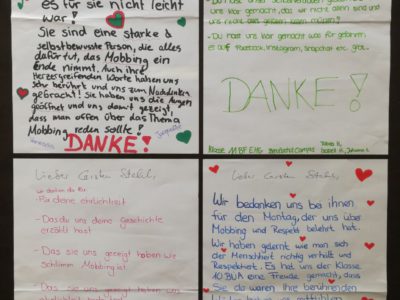 es für sie nicht leicht
war!
Sie sind eine starke &
selbstbewusste Person, die alles
dafür tut, das Mobbing ein
Ende nimmt. Auch ihre
Herzergreifenden Worte haben uns
sehr berührt und uns zum Nachdenken
gebracht! Sie haben uns die Augen
geöffnet und uns damit gezeigt,
dass man offen über das Thema
Mobbing reden sollte!
DANKE!
uns klar gemacht, das wir nicht allein sind und
uns nicht alles gefallen lassen müssen!
Du hast uns klar gemacht was für gefahren
es auf Facebook, Instagram, Snapchat etc. gibt.
DANKE!
Klasse 11BF EHG
Lieber Carsten Stahl,
wir danken dir für
- Für deine ehrlichkeit
- Das du uns deine Geschichte
erzählt hast
- Das sie uns gezeigt haben wie
schlimm Mobbing ist
- Das sie uns gezeigt haben uns
Lieber Carsten Stahl,
Wir bedanken uns bei ihnen
für den Montag, der uns über
Mobbing und Respekt belehrt hat.
Wir haben gelernt wie man sich
der Menschheit richtig verhält und
Respektiert. Es hat uns der Klasse
10 BUH eine Freude gemacht, dass
Sie da waren. Ihre berührenden